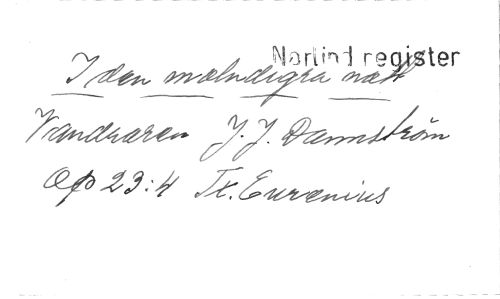 Norlind register
I den molndigra natt
Vandraren J. J. Dannström
Op 23:4 Tx. Eurenius